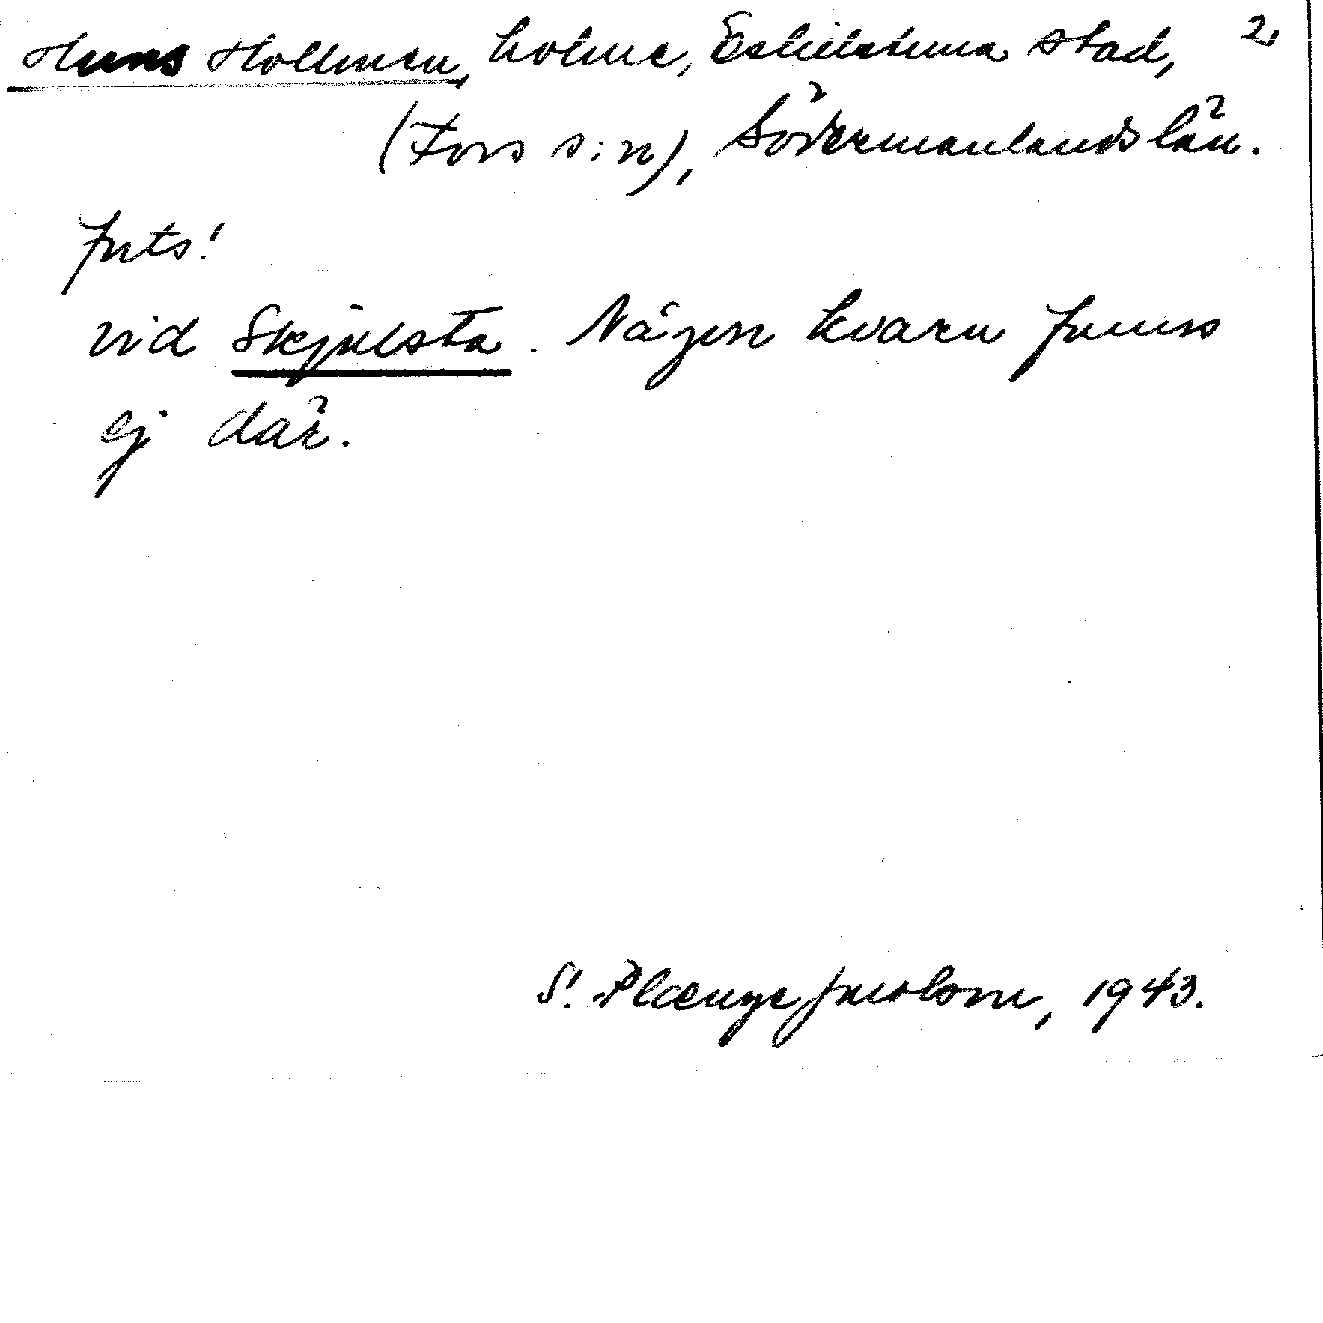 Hans Hollmen, holme, Eskilstuna stad, 2.
(Fors s:n), Södermanlands län.
forts!
vid Skjulsta. Någon kvarn finns
ej där.
S. Plænge Jacobson, 1943.